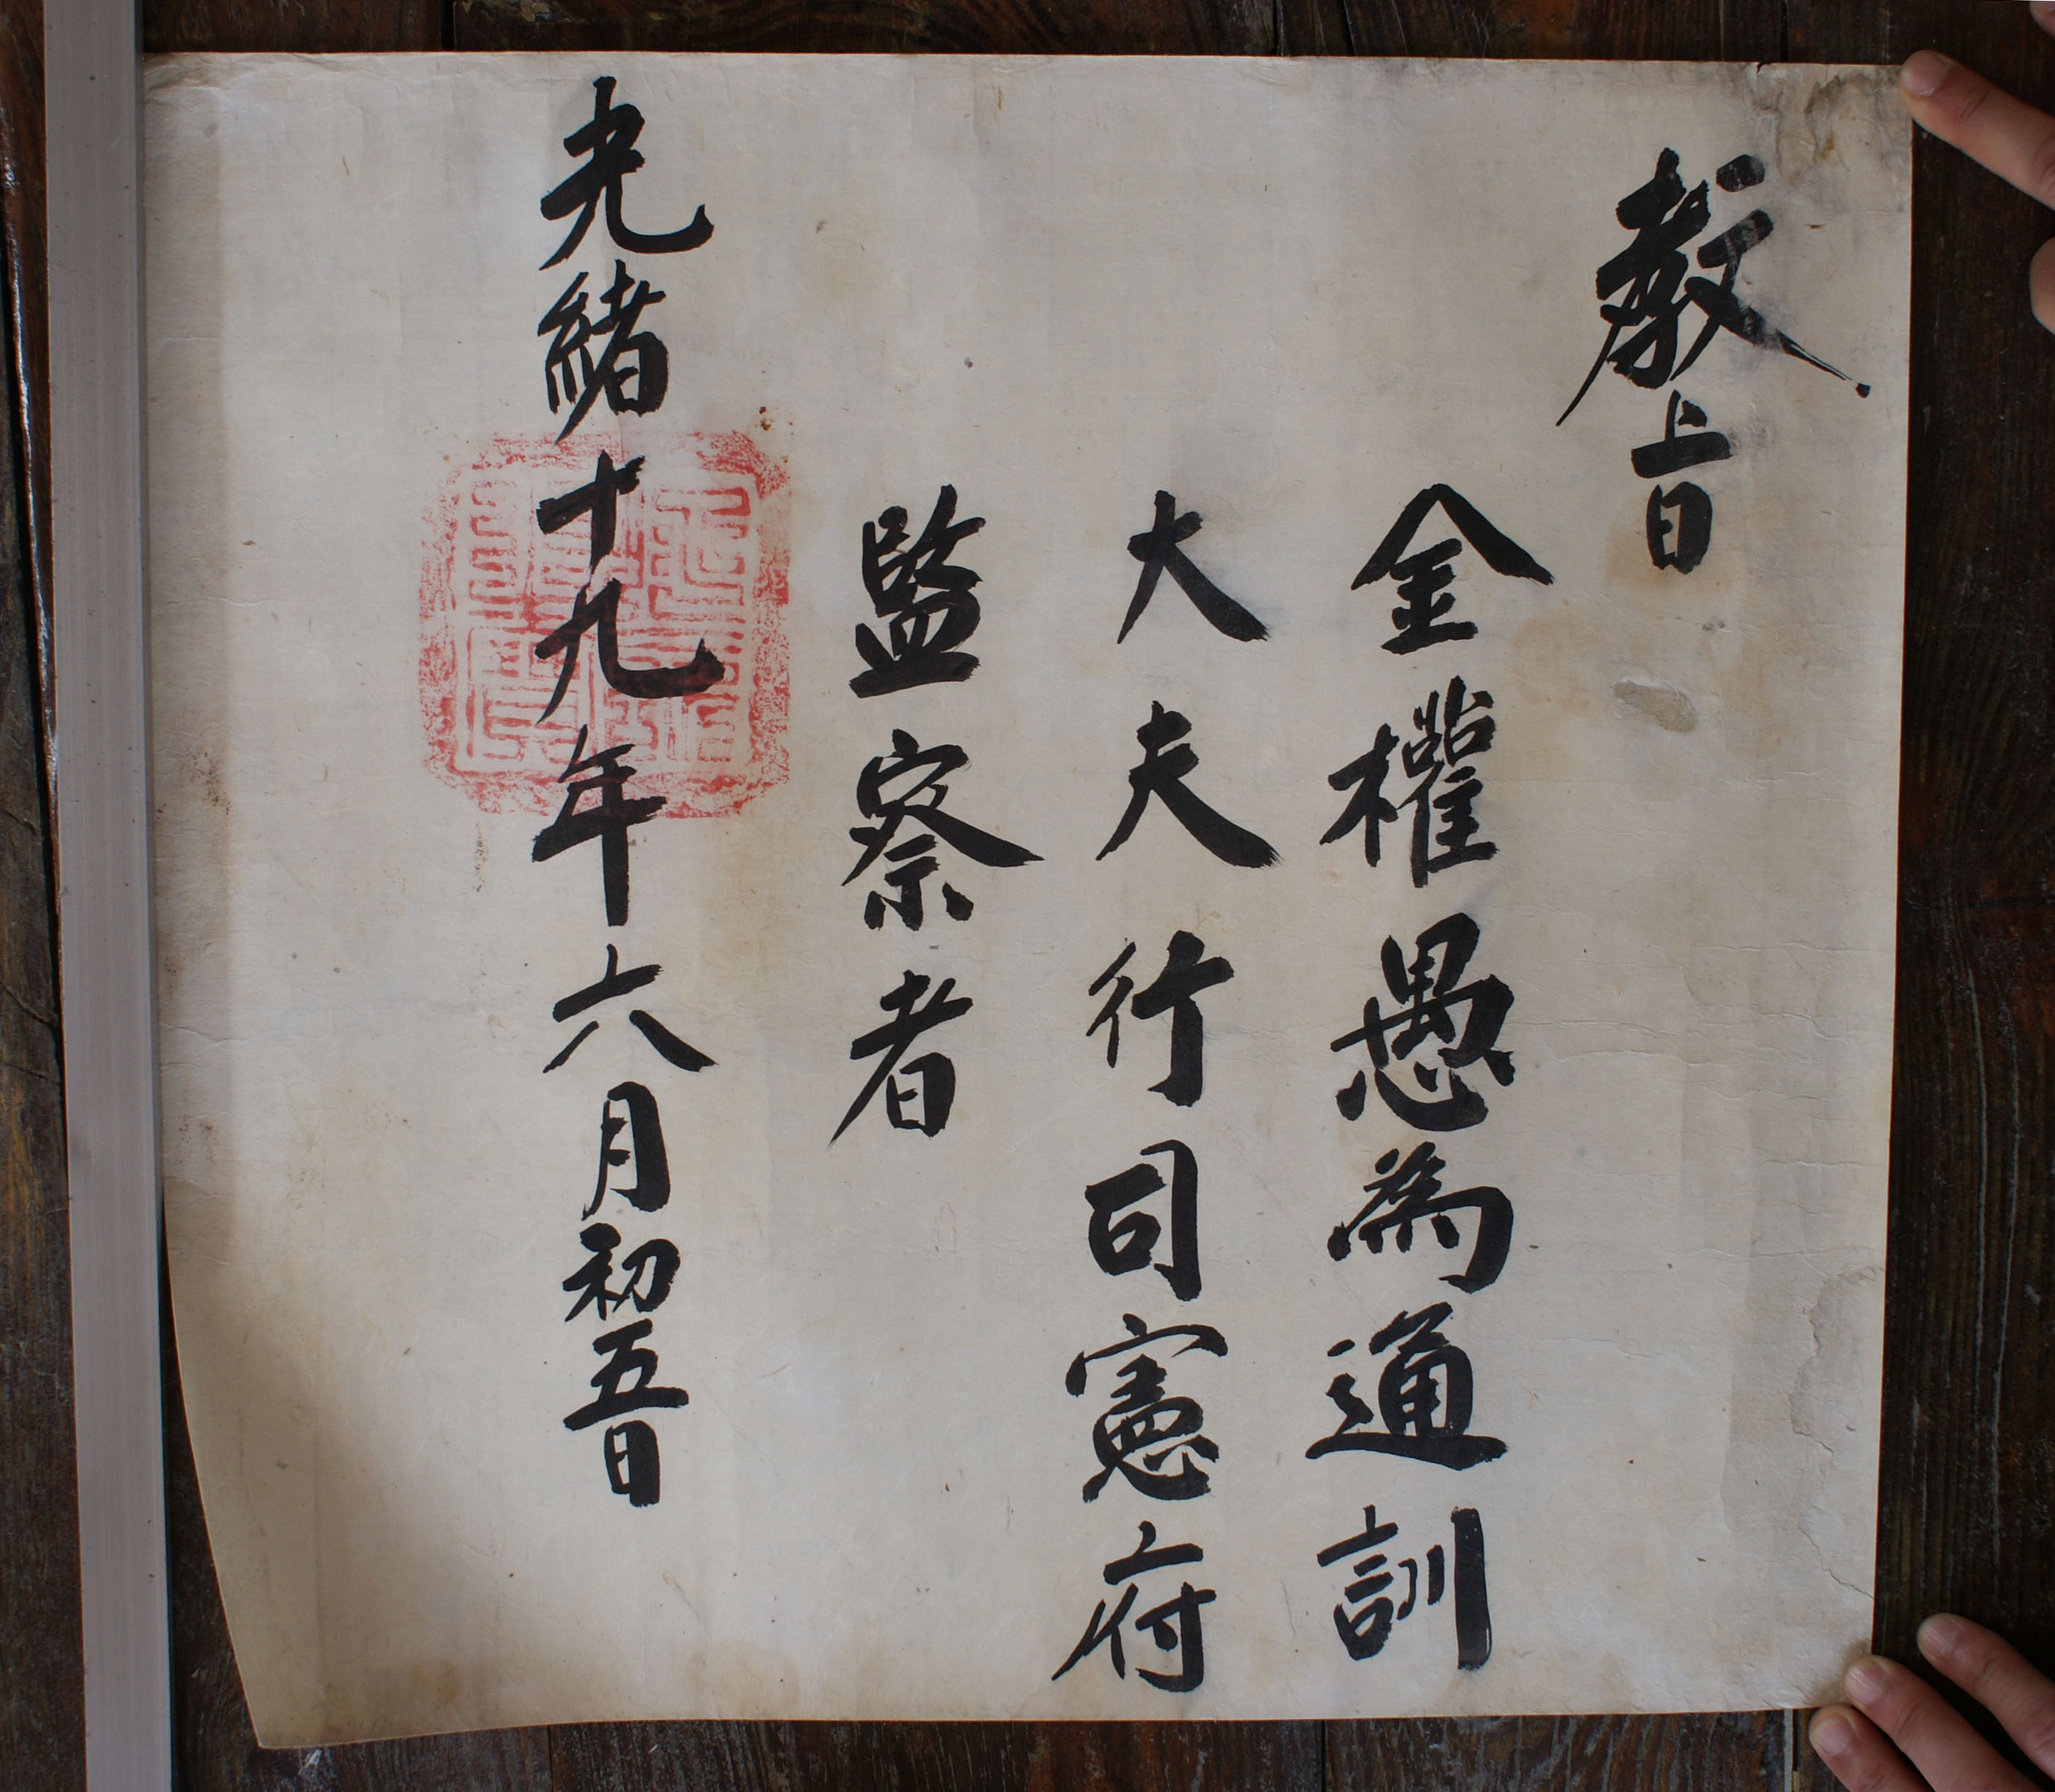 教旨
金權愚為通訓
大夫行司憲府
監察者
光緒十九年六月初五日